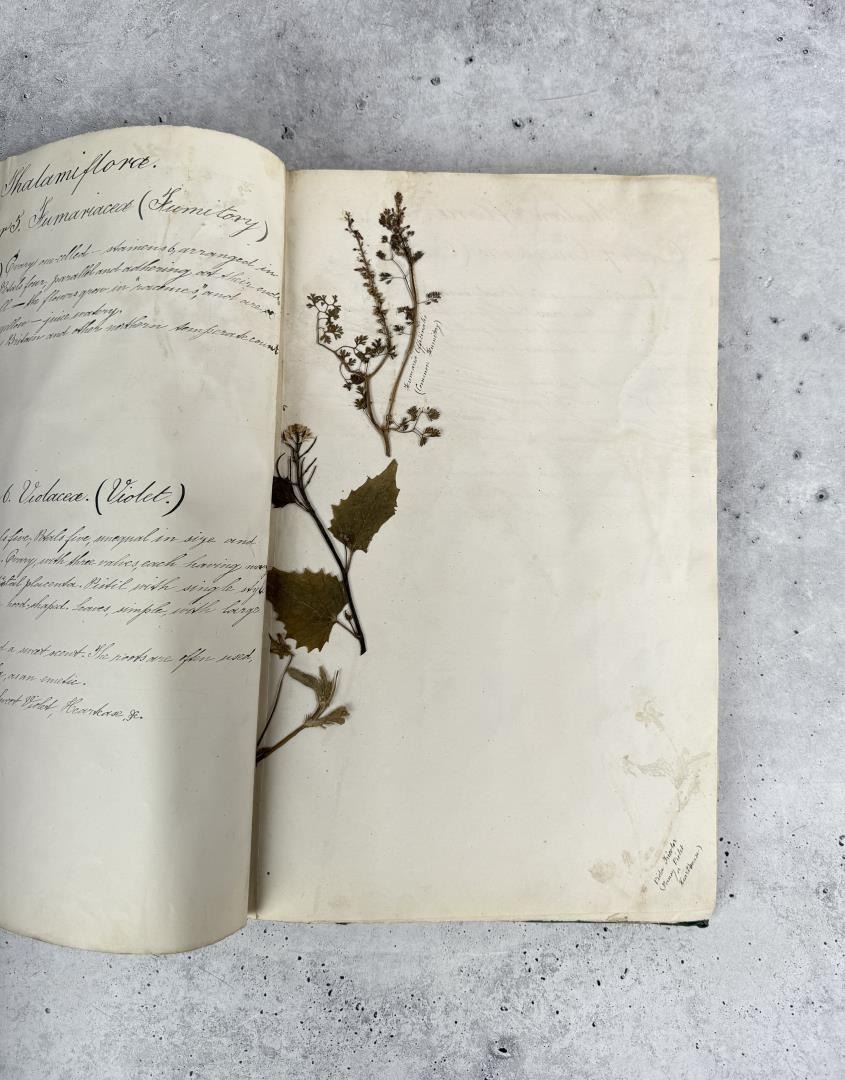 Thalamifloræ.
r 5. Fumariaceæ (Fumitory)
Ovary one-celled - stamens 6, arranged in
Petals four, parallel and adhering at their ends
- the flowers grow in "racemes," and are
yellow - juice watery.
Britain and other northern temperate coun
6. Violaceæ. (Violet.)
five, Petals five, unequal in size and
. Ovary, with three valves, each having
placenta. Pistil with single styl
hood-shaped. Leaves, simple, with large
d a sweet scent. The roots are often used,
, as an emetic.
Sweet Violet, Heartsease, &c.
Fumaria Officinalis
(Common Fumitory)
Viola Tricolor
(Pansy Violet
or
Heartsease)